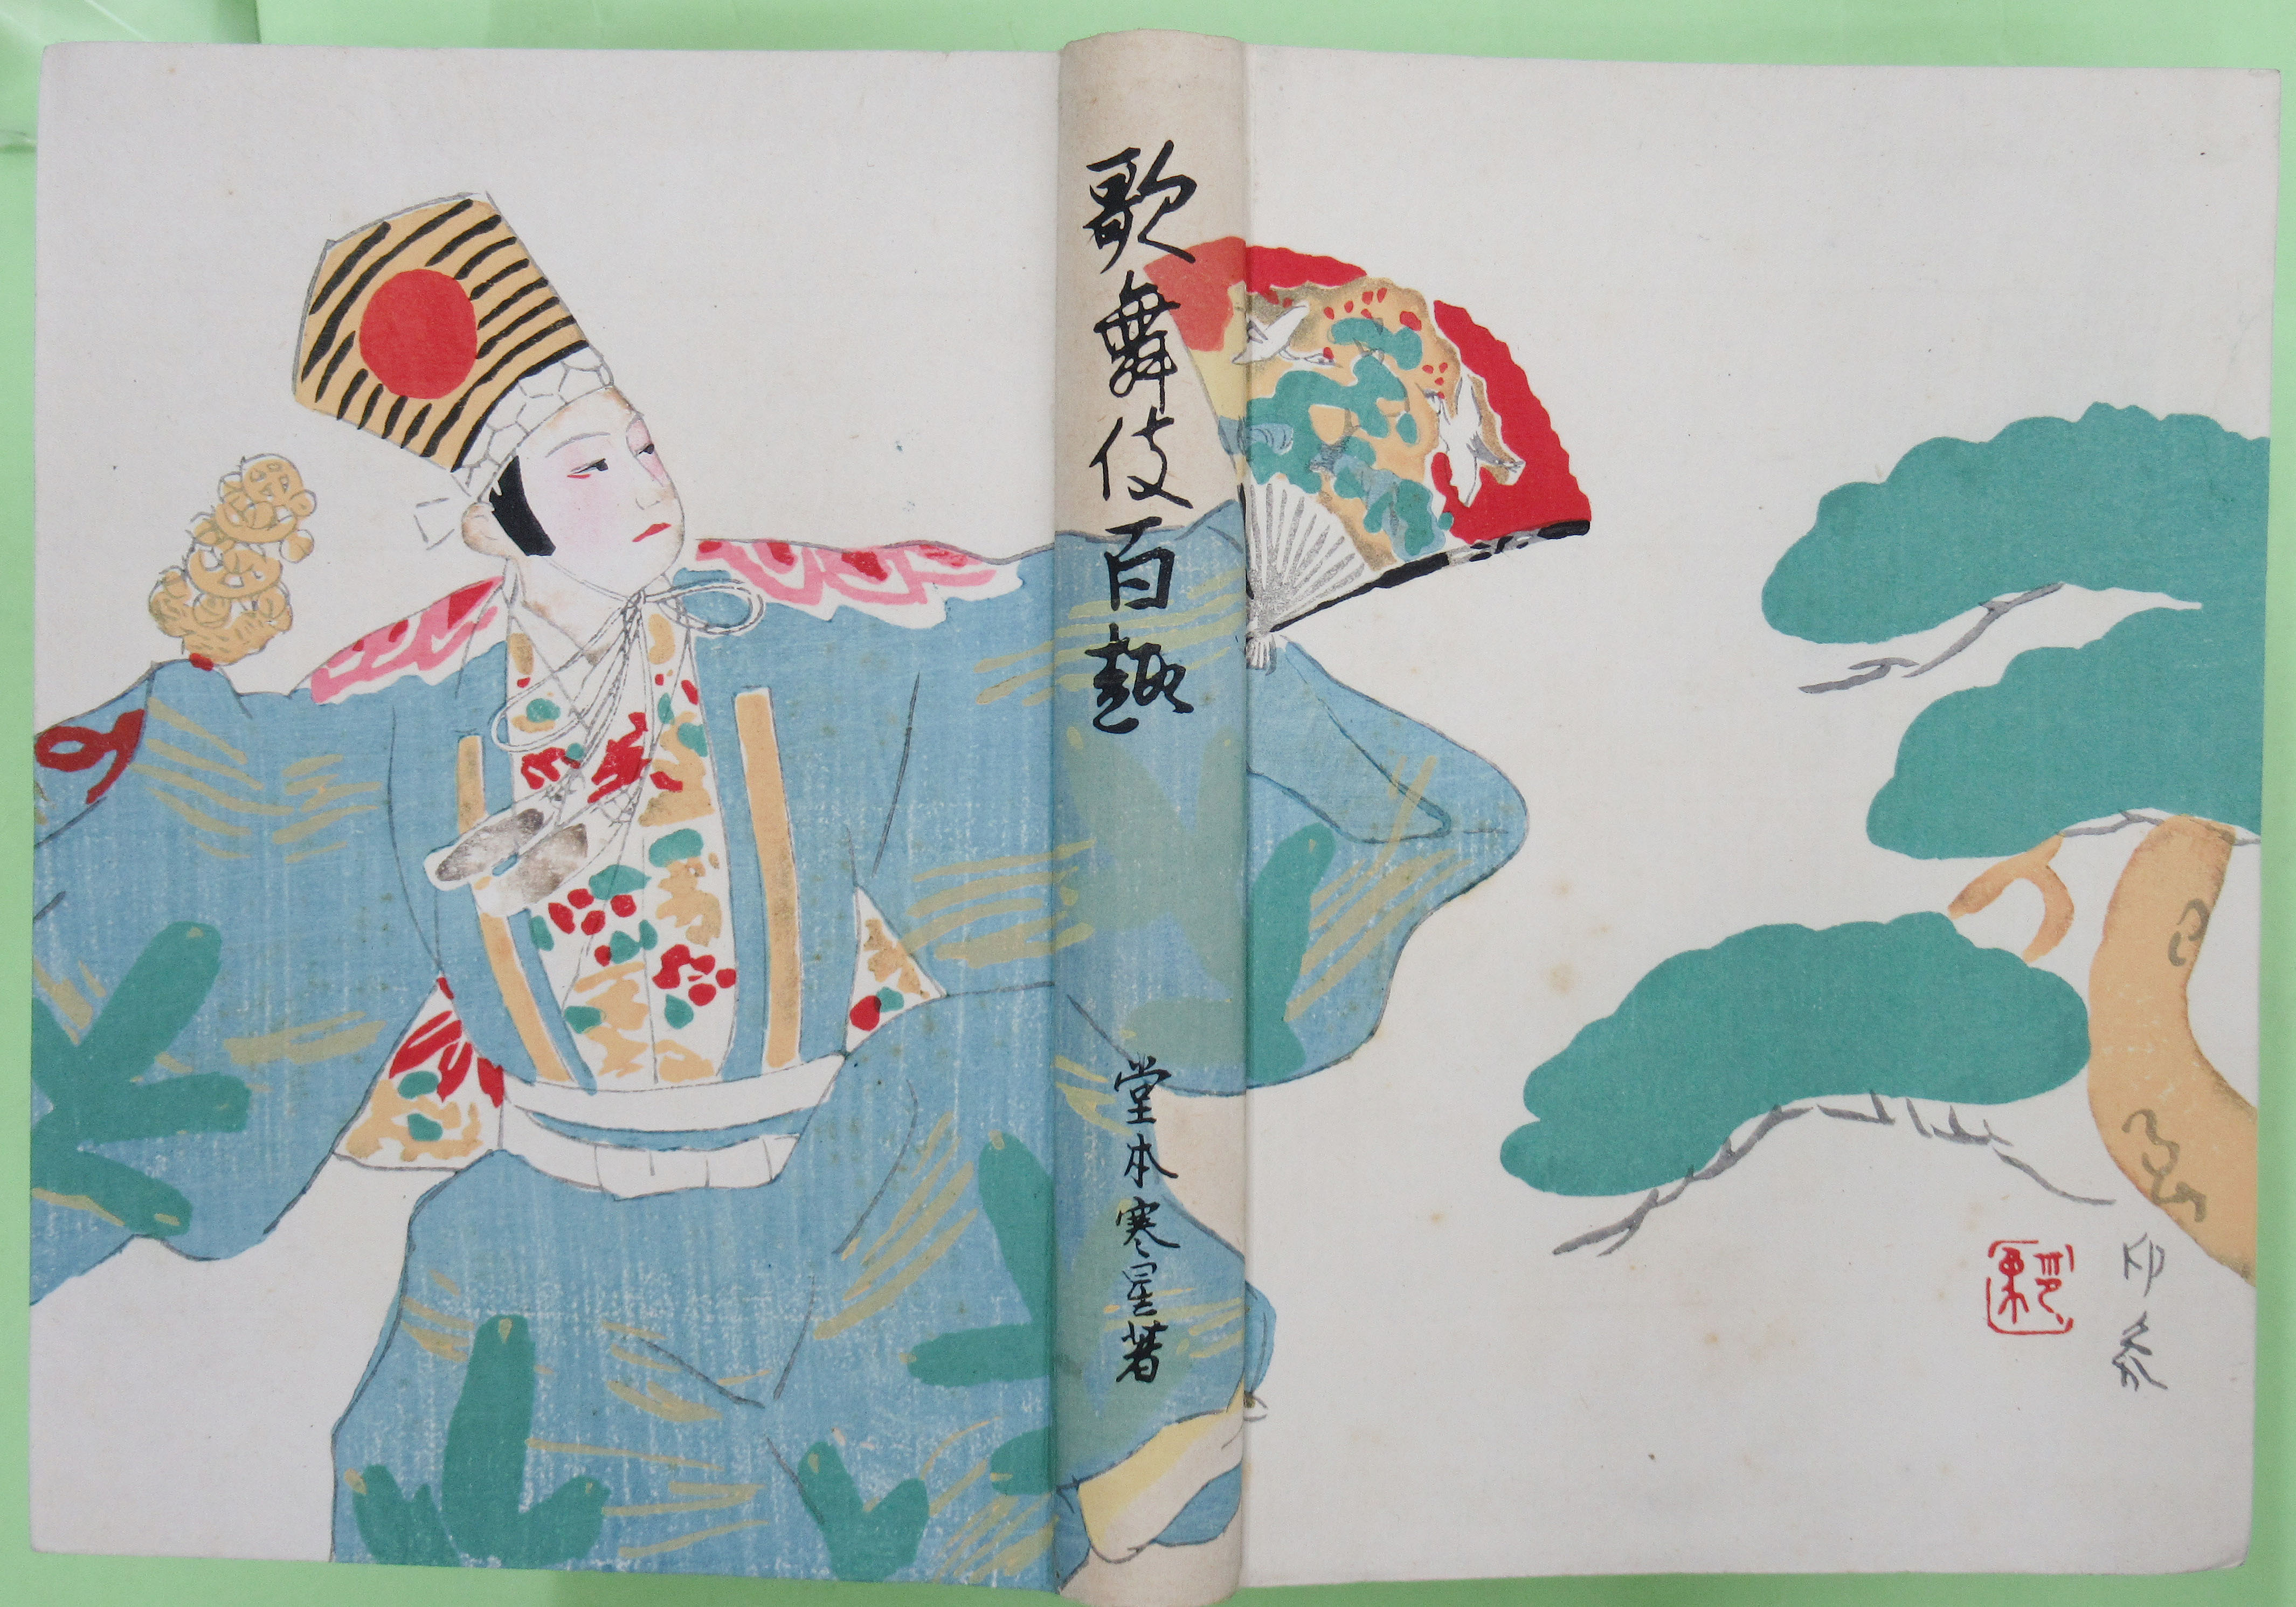 歌舞伎百趣
堂本寒星著
印象